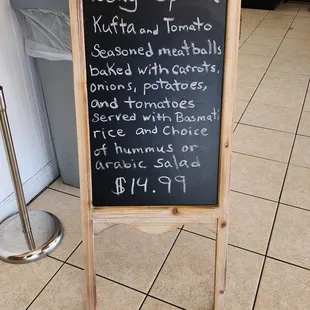 Kufta and Tomato
Seasoned meatballs
baked with carrots,
onions, potatoes,
and tomatoes
served with Basmati
rice and Choice
of hummus or
arabic salad
$14.99